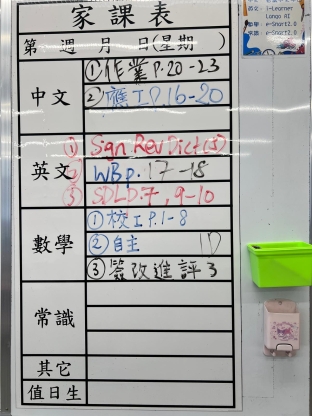 家課表
第 週 月 日(星期 )
中文
①作業P.20-23
②應工P.16-20
英文
① Sign Rev Dict(8)
② WB p.17-18
③ SDLD:7, 9-10
數學
①校工P.1-8
②自主
③簽改進評3
常識
其它
值日生
英文: i-Learner
Lango AI
數學: e-Smart2.0
常識: e-Smart2.0